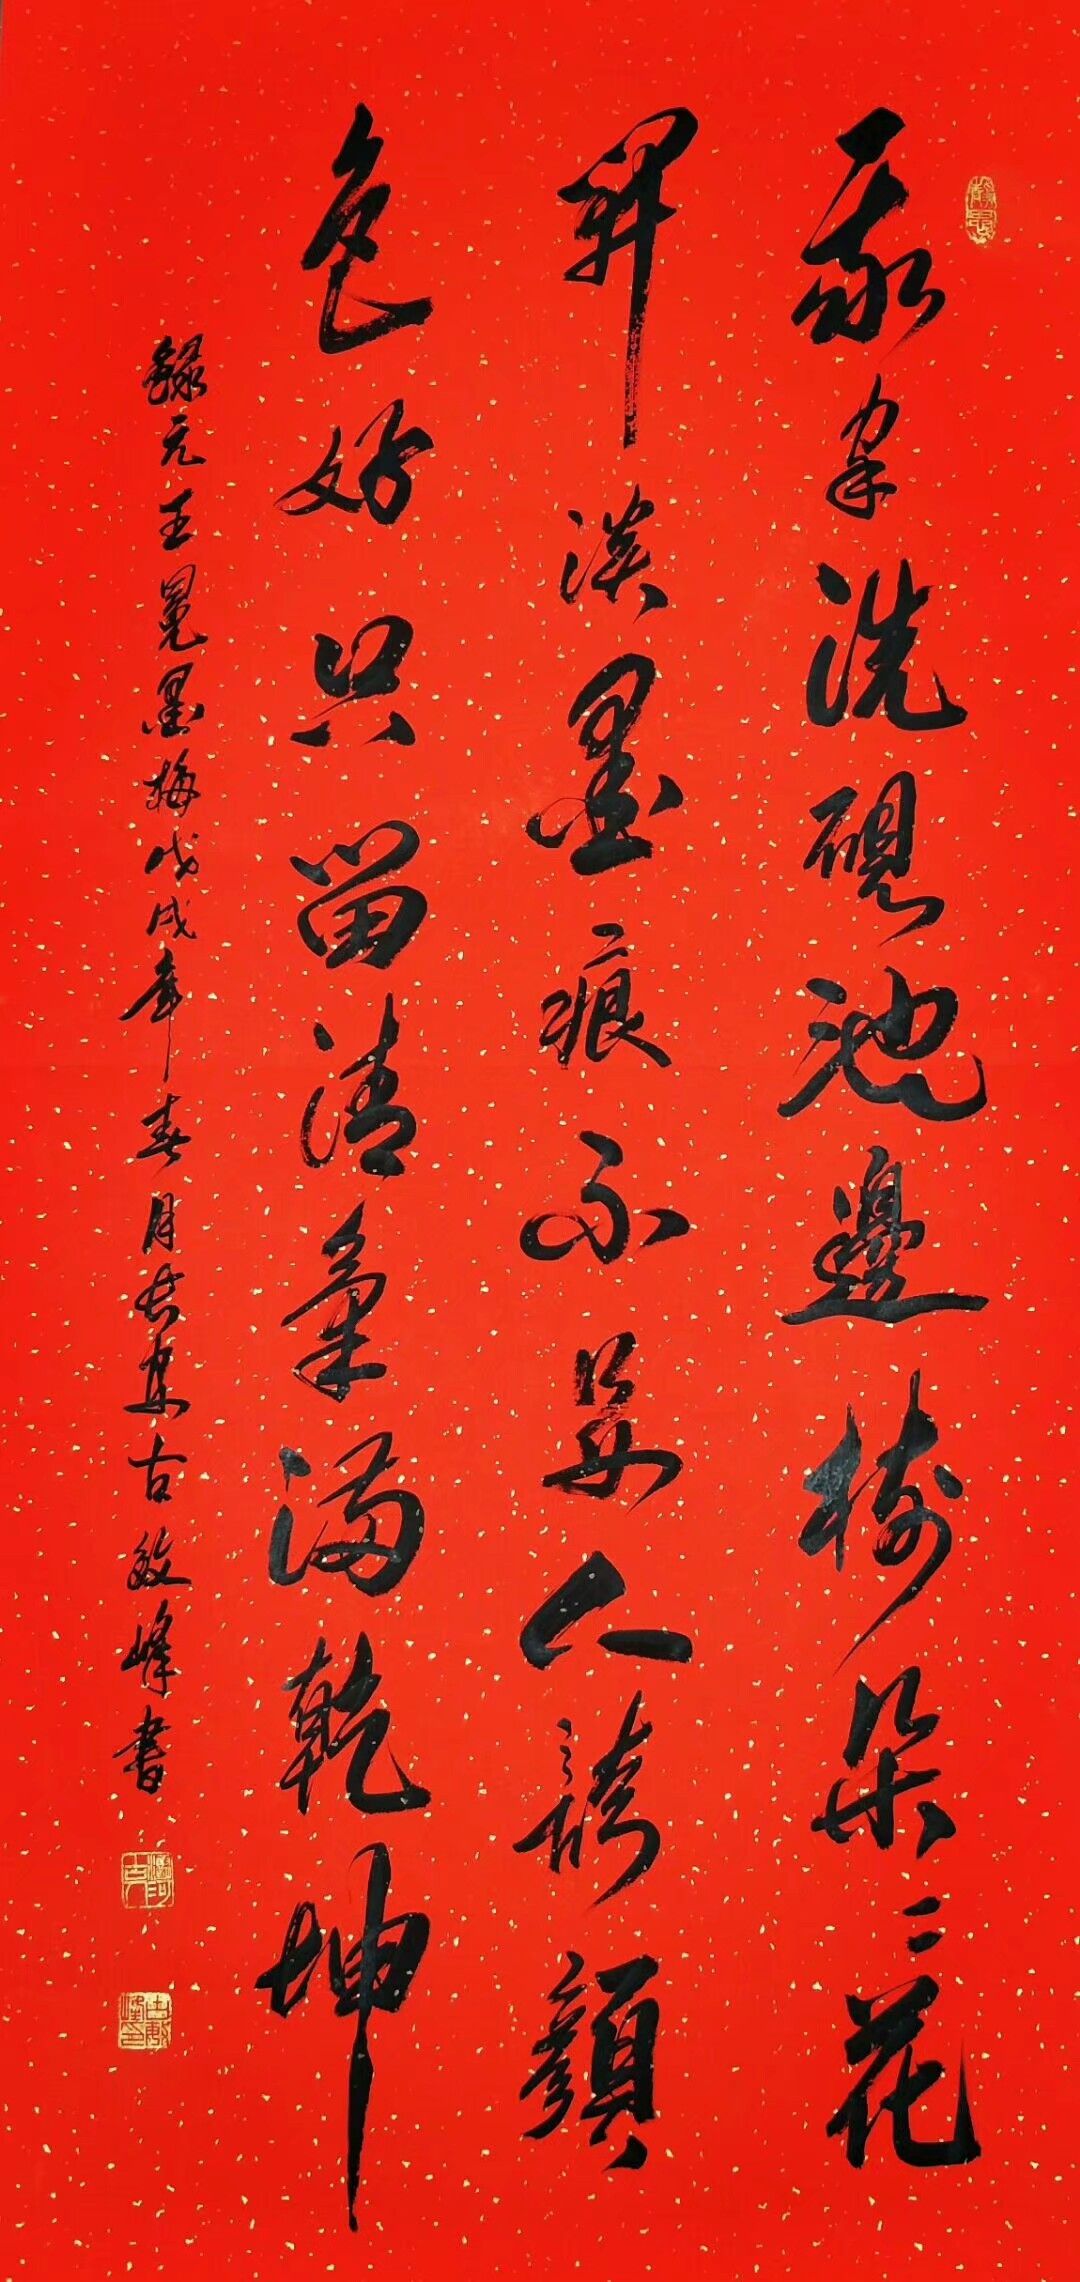 我家洗硯池邊樹朵〻花
開淡墨痕不要人誇顏
色好只留清氣滿乾坤
錄元王冕墨梅戊戌年春月長安古敏峰書
古敏峰印